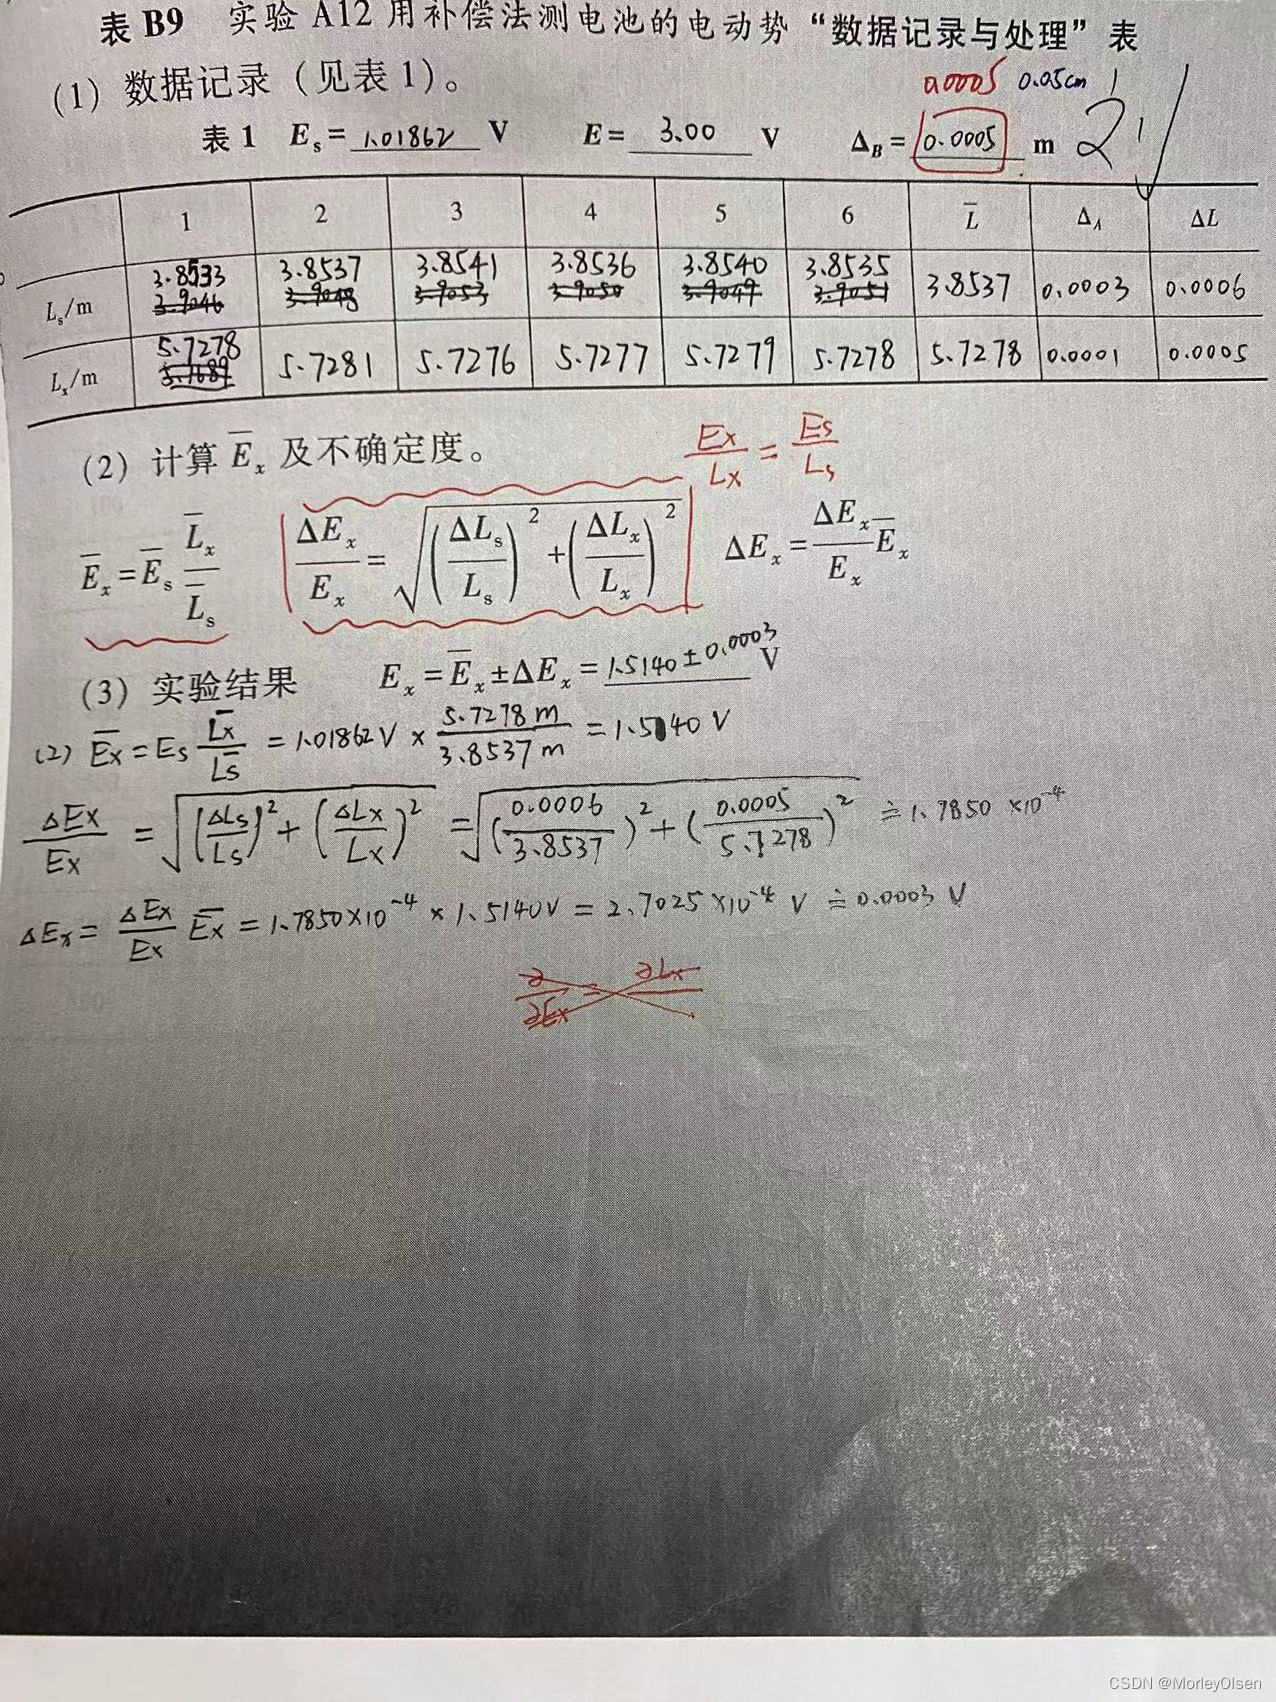 表 B9 实验 A12 用补偿法测电池的电动势“数据记录与处理”表
(1) 数据记录（见表 1）。
0.0005 0.05cm
表 1 E_s = 1.01862 V E = 3.00 V Δ_B = 0.0005 m
1 2 3 4 5 6 L̄ Δ_A ΔL
L_s/m 3.8533 3.8537 3.8541 3.8536 3.8540 3.8535 3.8537 0.0003 0.0006
3.9046 3.9048 3.9053 3.9050 3.9049 3.9051
L_x/m 5.7278 5.7281 5.7276 5.7277 5.7279 5.7278 5.7278 0.0001 0.0005
(2) 计算 Ē_x 及不确定度。
E_x/L_x = E_s/L_s
Ē_x = Ē_s L̄_x/L̄_s ΔE_x/E_x = √((ΔL_s/L_s)² + (ΔL_x/L_x)²) ΔE_x = ΔE_x/E_x Ē_x
(3) 实验结果 E_x = Ē_x ± ΔE_x = 1.5140 ± 0.0003 V
(2) Ēx = Es L̄x/L̄s = 1.01862V × 5.7278m/3.8537m = 1.5140 V
ΔEx/Ex = √((ΔLs/Ls)² + (ΔLx/Lx)²) = √((0.0006/3.8537)² + (0.0005/5.7278)²) ≐ 1.7850 ×10⁻⁴
ΔEx = ΔEx/Ex Ēx = 1.7850×10⁻⁴ × 1.5140V = 2.7025×10⁻⁴ V ≐ 0.0003 V
∂/∂Ex = ∂Lx
CSDN @MorleyOlsen